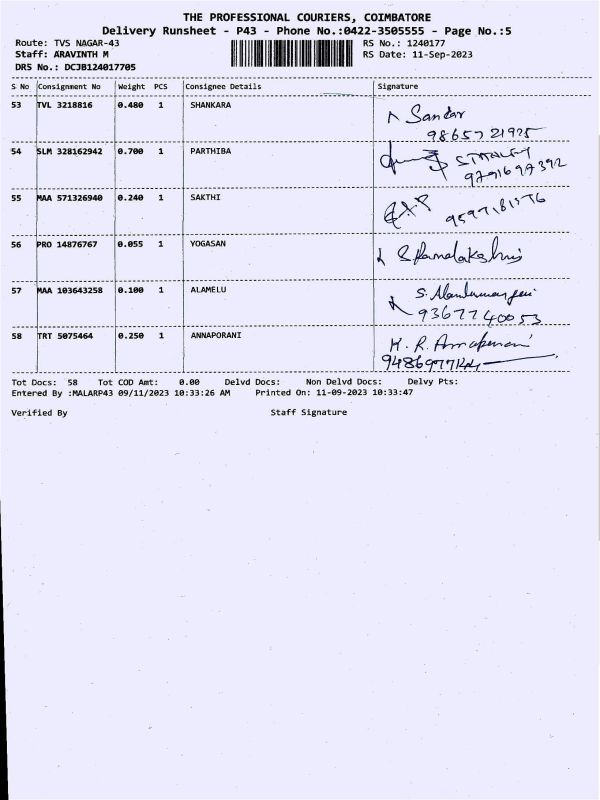 THE PROFESSIONAL COURIERS, COIMBATORE
Delivery Runsheet - P43 - Phone No.:0422-3505555 - Page No.:5
Route: TVS NAGAR-43 RS No.: 1240177
Staff: ARAVINTH M RS Date: 11-Sep-2023
DRS No.: DCJB124017705
S No Consignment No Weight PCS Consignee Details Signature
53 TVL 3218816 0.480 1 SHANKARA
Sandar
9865721925
54 SLM 328162942 0.700 1 PARTHIBA
STANLEY
9791697392
55 MAA 571326940 0.240 1 SAKTHI
56 PRO 14876767 0.055 1 YOGASAN
57 MAA 103643258 0.100 1 ALAMELU
9367740053
58 TRT 5075464 0.250 1 ANNAPORANI
H. R. Annaporani
Tot Docs: 58 Tot COD Amt: 0.00 Delvd Docs: Non Delvd Docs: Delvy Pts:
Entered By :MALARP43 09/11/2023 10:33:26 AM Printed On: 11-09-2023 10:33:47
Verified By Staff Signature